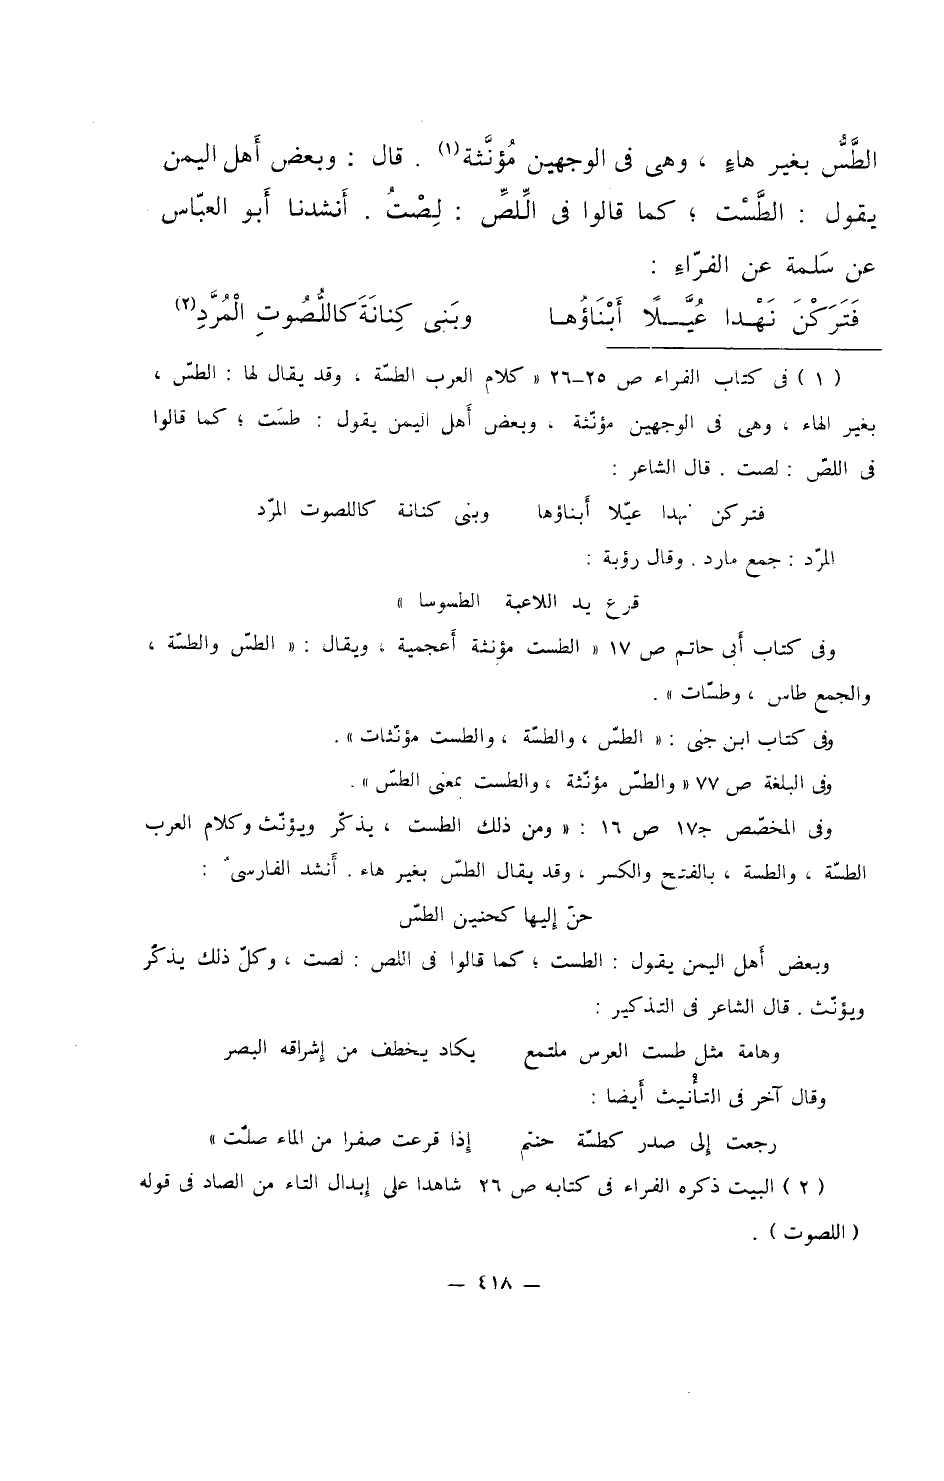 الطَّسُّ بغير هاءٍ ، وهى فى الوجهين مُؤنَّثة(١) . قال : وبعض أَهل اليمن
يقول : الطَّسْت ؛ كما قالوا فى اللِّصِّ : لِصْتُ . أَنشدنا أَبو العبّاس
عن سَلمة عن الفرّاءِ :
فَتَرَكْنَ نَهْدا عُيَّلًا أَبْنَاؤُهـا وبَنى كِنانَةَ كاللُّصُوتِ الْمُرَّدِ(٢)
( ١ ) فى كتاب الفراء ص ٢٥–٢٦ « كلام العرب الطسّة ، وقد يقال لها : الطسّ ،
بغير الهاء ، وهى فى الوجهين مؤنّثة ، وبعض أَهل اليمن يقول : طسَت ؛ كما قالوا
فى اللصّ : لصت . قال الشاعر :
فتركن نهدا عيّلا أَبناؤها وبنى كنانة كاللصوت المرّد
المرّد : جمع مارد . وقال رؤبة :
قرع يد اللاعبة الطسوسا »
وفى كتاب أَبى حاتم ص ١٧ « الطست مؤنثة أَعجمية ، ويقال : « الطسّ والطسّة ،
والجمع طاس ، وطسّات » .
وفى كتاب ابن جنى : « الطسّ ، والطسّة ، والطست مؤنّثات » .
وفى البلغة ص ٧٧ « والطسّ مؤنّثة ، والطست بمعنى الطسّ » .
وفى المخصّص ج١٧ ص ١٦ : « ومن ذلك الطست ، يذكّر ويؤنّث وكلام العرب
الطسّة ، والطسة ، بالفتح والكسر ، وقد يقال الطسّ بغير هاء . أَنشد الفارسىّ :
حنّ إليها كحنين الطسّ
وبعض أَهل اليمن يقول : الطست ؛ كما قالوا فى اللص : لصت ، وكلّ ذلك يذكّر
ويؤنّث . قال الشاعر فى التذكير :
وهامة مثل طست العرس ملتمع يكاد يخطف من إشراقه البصر
وقال آخر فى التأنيث أَيضا :
رجعت إلى صدر كطسّة حنتم إذا قرعت صفرا من الماء صلّت »
( ٢ ) البيت ذكره الفراء فى كتابه ص ٢٦ شاهدا على إبدال التاء من الصاد فى قوله
( اللصوت ) .
– ٤١٨ –